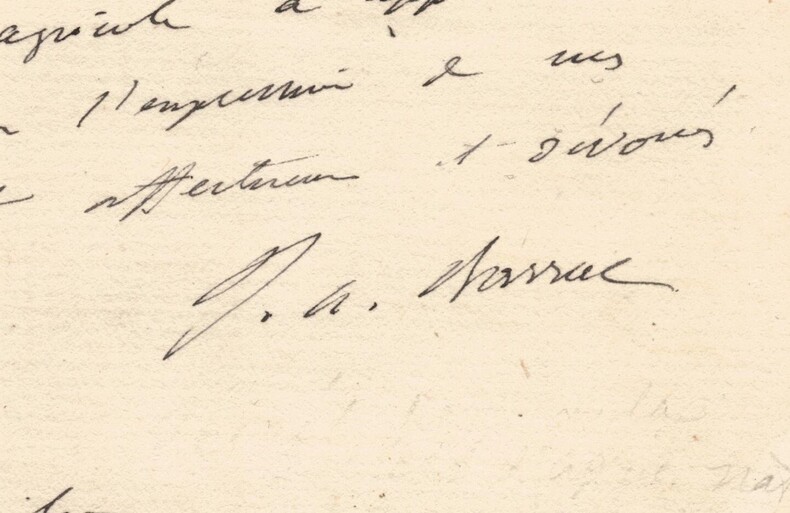 agricole a app
l'expression de mes
affectueux et dévoués
J. A. Barral